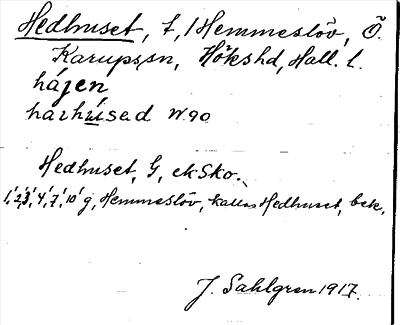 Hedhuset, t, / Hemmeslöv, Ö.
Karups sn, Hökshd, Hall. l.
hájen
harhúsad W. 90
Hedhuset, G, ekSko.
1,' 2,' 3,' 4,' 7,' 10' g, Hemmeslöv, kallas Hedhuset, bek.
J. Sahlgren 1917.